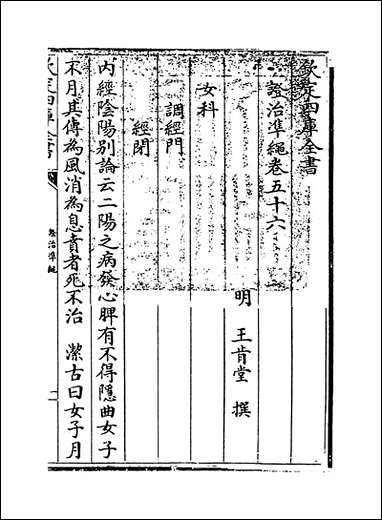 欽定四庫全書
證治準繩卷五十六
明 王肯堂 撰
女科
調經門
經閉
内經陰陽别論云二陽之病發心脾有不得隱曲女子
不月其傳為風消為息賁者死不治 潔古曰女子月
欽定四庫全書
證治準繩